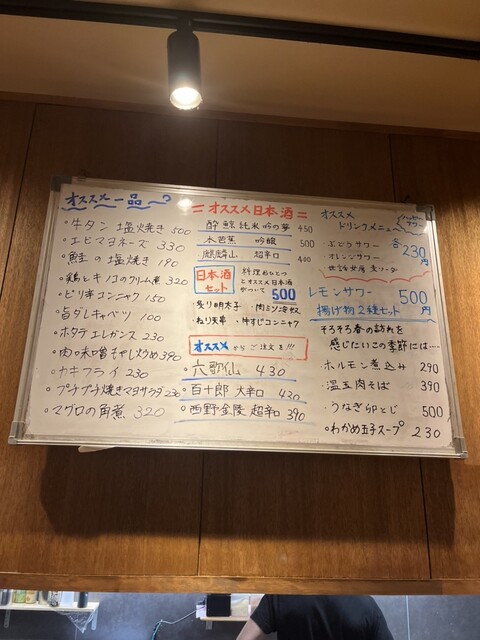 オススメ一品
・牛タン 塩焼き 500
・エビマヨネーズ 330
・鮭の塩焼き 190
・鶏とキノコのクリーム煮 320
・ピリ辛コンニャク 150
・旨ダレキャベツ 100
・ホタテエレガンス 230
・肉の味噌もやし炒め 390
・カキフライ 230
・プチプチ焼きマヨサラダ 230
・マグロの角煮 320
=オススメ日本酒=
酔鯨 純米吟の夢 450
木芭蕉 吟醸 500
麒麟山 超辛口 400
日本酒セット
料理おひとつ
とオススメ日本酒
がついて
500
・炙り明太子 ・肉ミソ冷奴
・ねり天串 ・牛すじコンニャク
オススメからご注文を!!!
・六歌仙 430
・百十郎 大辛口 430
・西野金陵 超辛口 390
オススメ
ドリンクメニュー
ハッピーアワー
ぶどうサワー
オレンジサワー
各230円
レモンサワー
揚げ物2種セット
500円
そろそろ春の訪れを
感じたいこの季節には‥‥
・ホルモン煮込み 290
・温玉肉そば 390
・うなぎ卵とじ 500
・わかめ玉子スープ 230